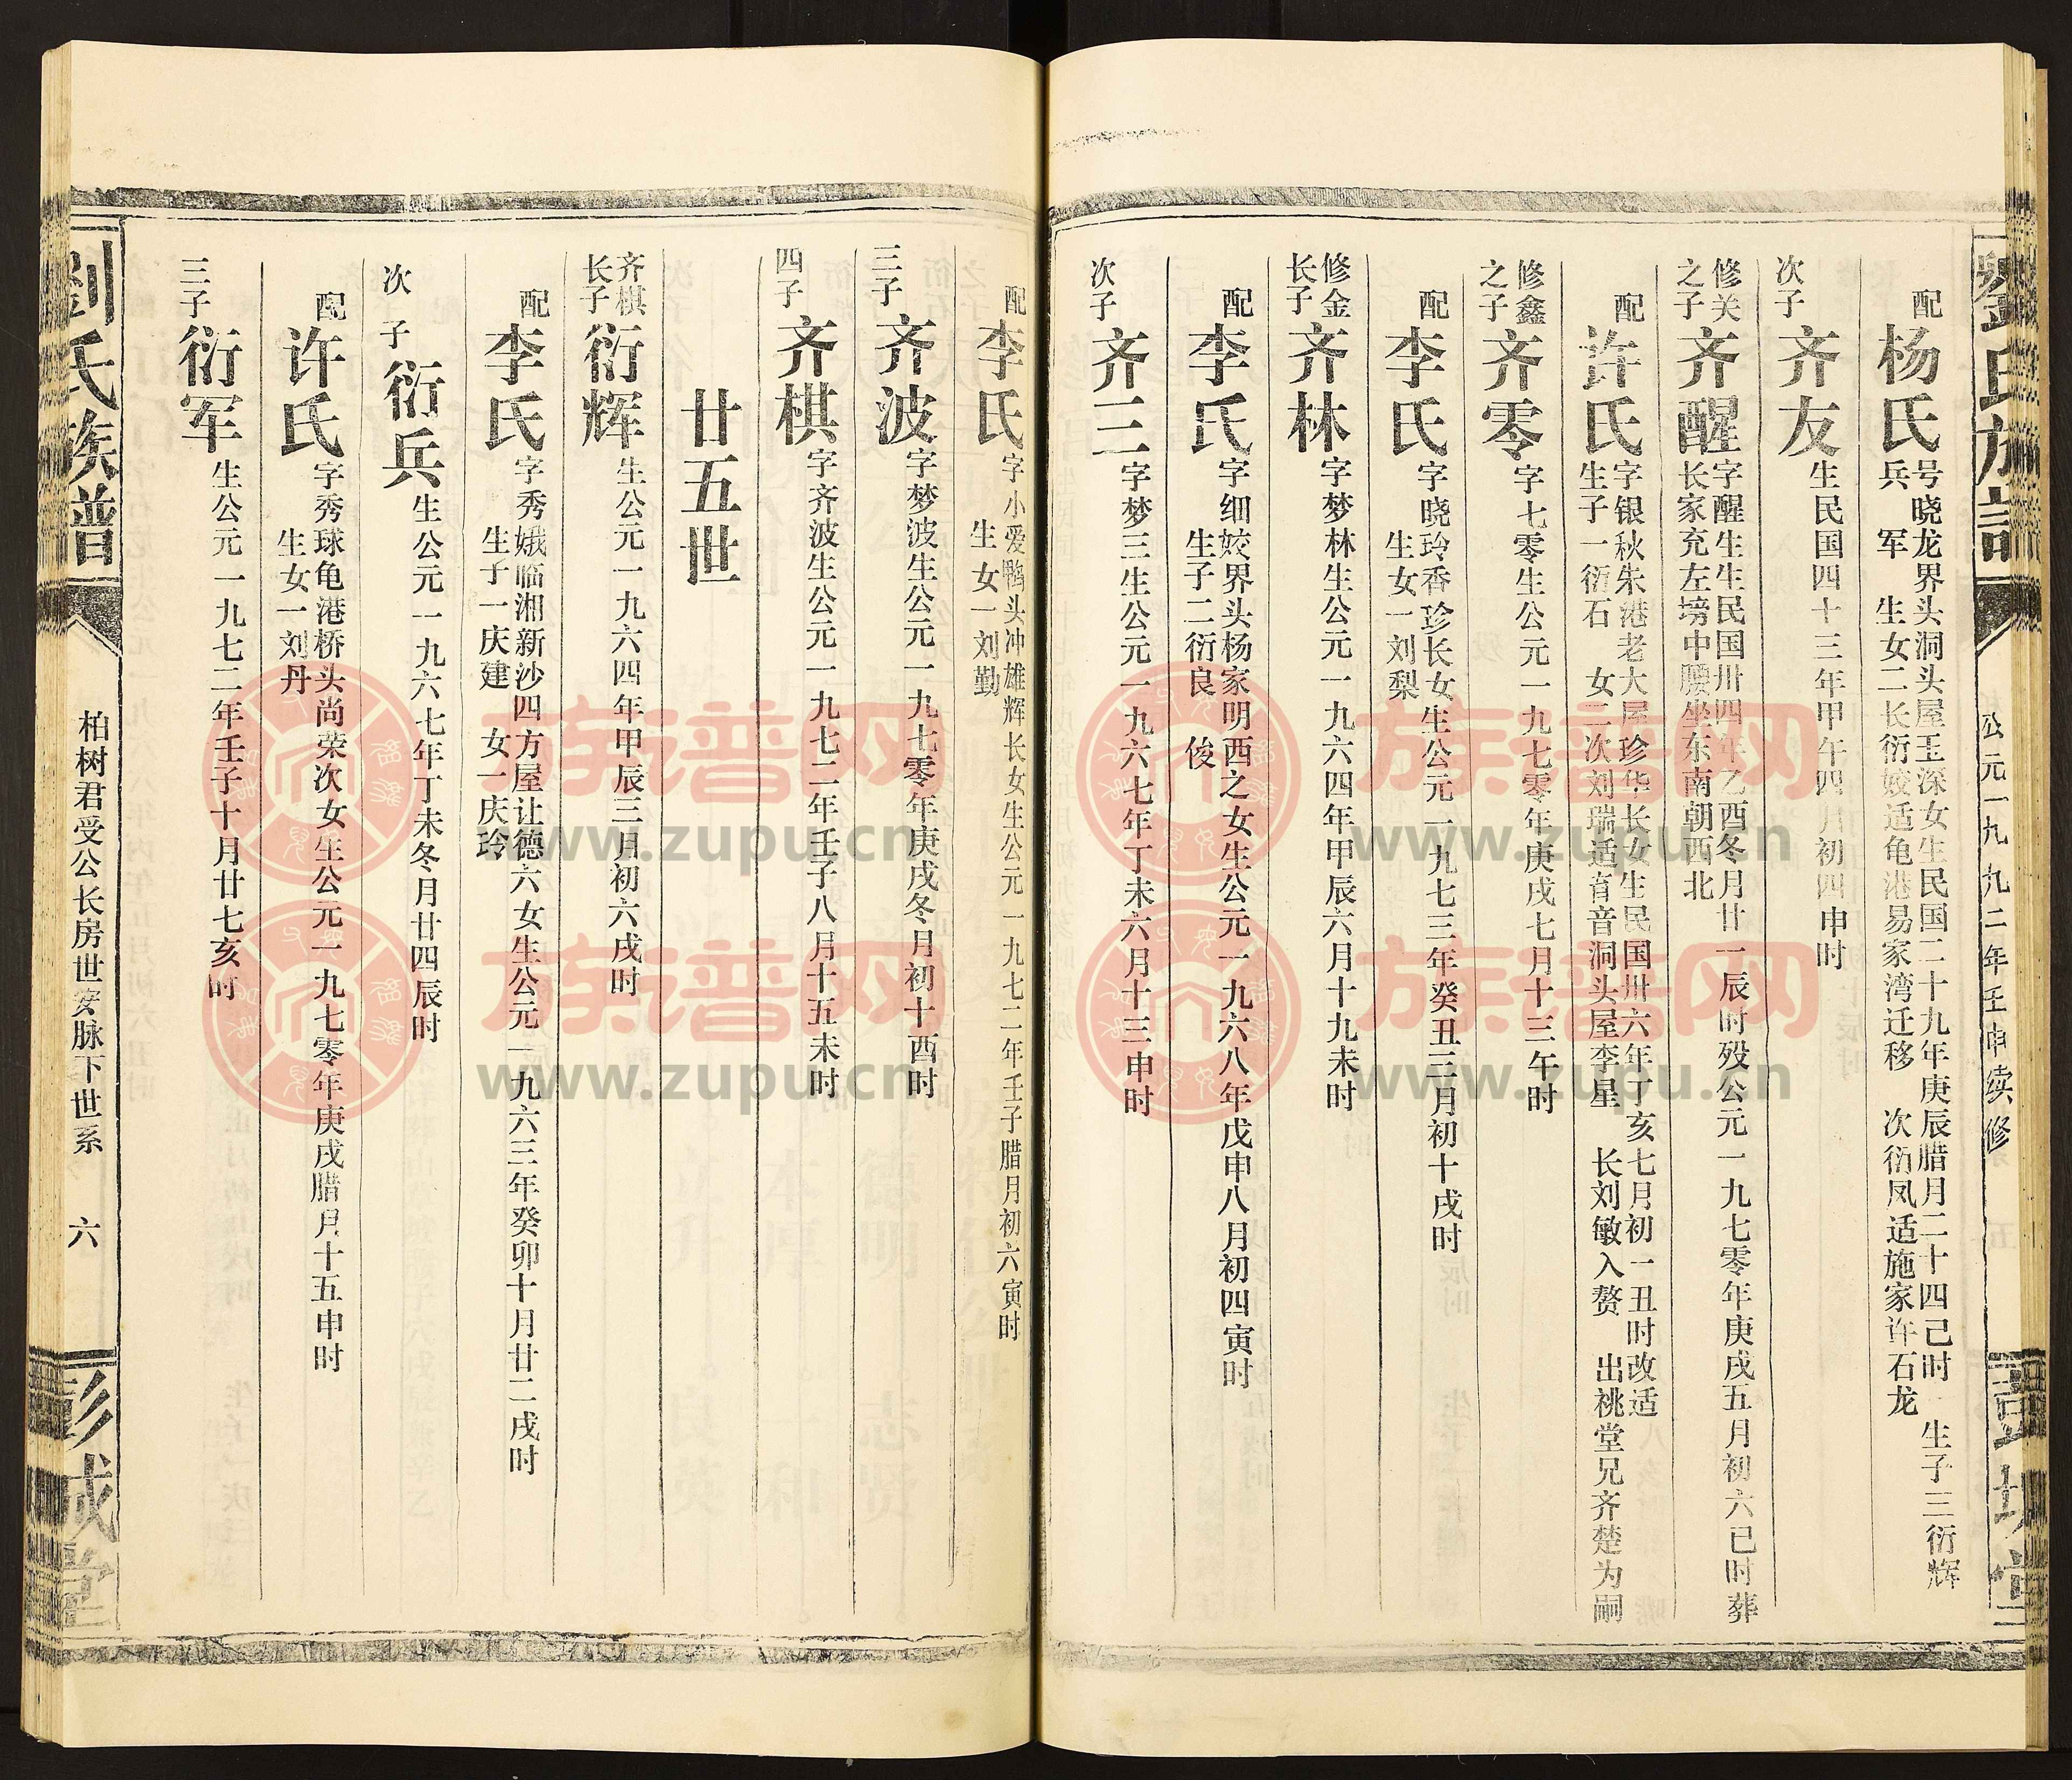 公元一九九二年壬申续修
配
杨氏
号晓龙界头洞头屋玉深女生民国二十九年庚辰腊月二十四己时 生子三衍辉
兵 军 生女二长衍姣适龟港易家湾迁移 次衍凤适施家许石龙
次子
齐友
生民国四十三年甲午四月初四申时
修关
之子
齐醒
字醒生生民国卅四年乙酉冬月廿一辰时殁公元一九七零年庚戌五月初六巳时葬
长家充左塝中腰坐东南朝西北
配
许氏
字银秋朱港老大屋珍华长女生民国卅六年丁亥七月初一丑时改适
生子一衍石 女二次刘瑞适 音洞头屋李星 长刘敏入赘 出祧堂兄齐楚为嗣
修鑫
之子
齐零
字七零生公元一九七零年庚戌七月十三午时
配
李氏
字晓玲香珍长女生公元一九七三年癸丑三月初十戌时
生女一刘梨
修金
长子
齐林
字梦林生公元一九六四年甲辰六月十九未时
配
李氏
字细姣界头杨家明西之女生公元一九六八年戊申八月初四寅时
生子二衍良 俊
次子
齐三
字梦三生公元一九六七年丁未六月十三申时
配
李氏
字小爱鸭头冲雄辉长女生公元一九七二年壬子腊月初六寅时
生女一刘勤
三子
齐波
字梦波生公元一九七零年庚戌冬月初十酉时
四子
齐棋
字齐波生公元一九七二年壬子八月十五未时
廿五世
齐棋
长子
衍辉
生公元一九六四年甲辰三月初六戌时
配
李氏
字秀娥临湘新沙四方屋让德六女生公元一九六三年癸卯十月廿二戌时
生子一庆建 女一庆玲
次子
衍兵
生公元一九六七年丁未冬月廿四辰时
配
许氏
字秀球龟港桥头尚荣次女生公元一九七零年庚戌腊月十五申时
生女一刘丹
三子
衍军
生公元一九七二年壬子十月廿七亥时
劉氏族譜
柏树君受公长房世安脉下世系
六
彭城堂
族谱网
www.zupu.cn
族谱网
www.zupu.cn
族谱网
www.zupu.cn
族谱网
www.zupu.cn